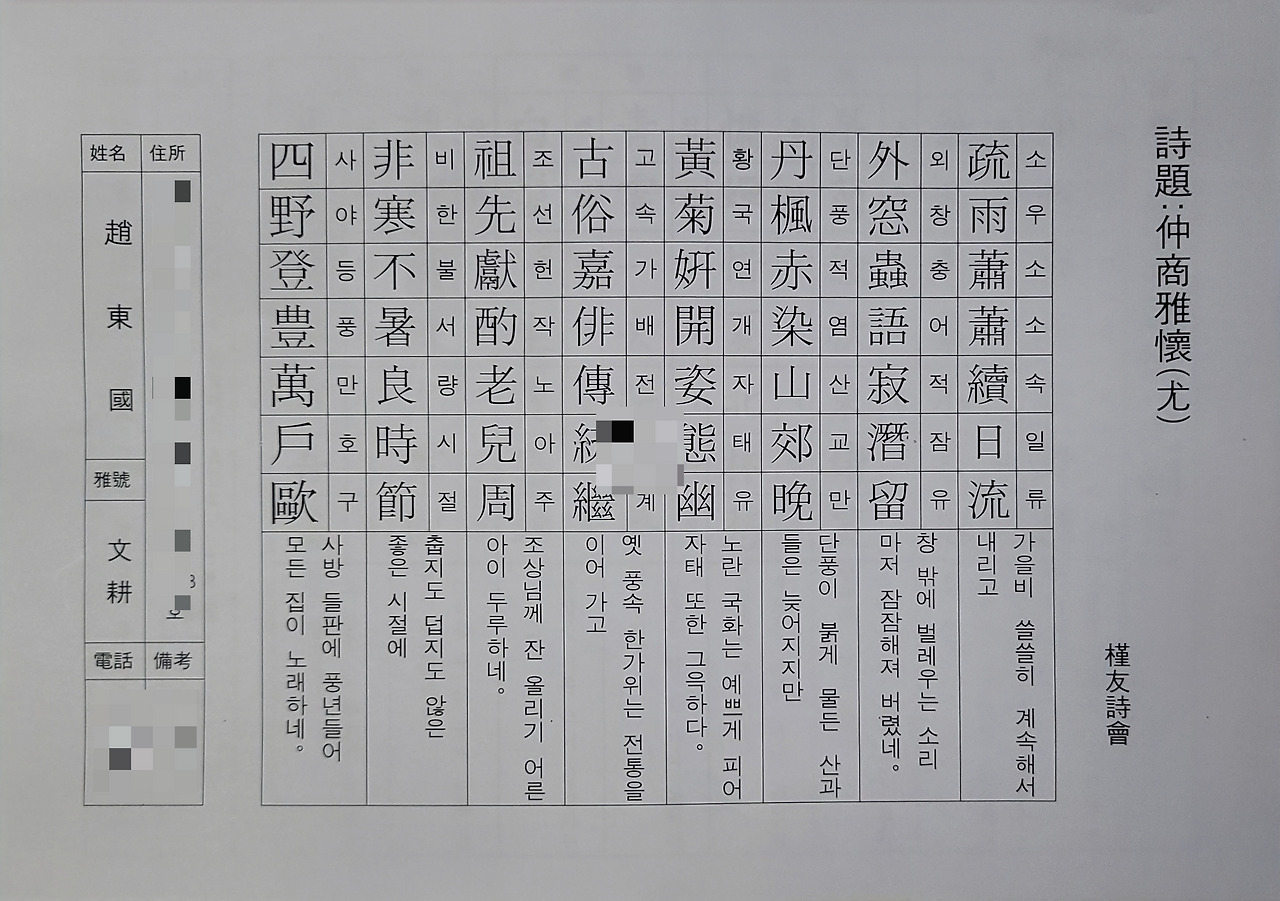 詩題:仲商雅懷(尤)
槿友詩會
疏雨蕭蕭續日流
소우소소속일류
가을비 쓸쓸히 계속해서
내리고
外窓蟲語寂潛留
외창충어적잠유
창 밖에 벌레우는 소리
마저 잠잠해져 버렸네。
丹楓赤染山郊晩
단풍적염산교만
단풍이 붉게 물든 산과
들은 늦어지지만
黃菊姸開姿態幽
황국연개자태유
노란 국화는 예쁘게 피어
자태 또한 그윽하다。
古俗嘉俳傳 繼
고속가배전 계
옛 풍속 한가위는 전통을
이어 가고
祖先獻酌老兒周
조선헌작노아주
조상님께 잔 올리기 어른
아이 두루하네。
非寒不暑良時節
비한불서량시절
춥지도 덥지도 않은
좋은 시절에
四野登豊萬戶歐
사야등풍만호구
사방 들판에 풍년들어
모든 집이 노래하네。
住所
호
備考
姓名
趙東國
雅號
文耕
電話